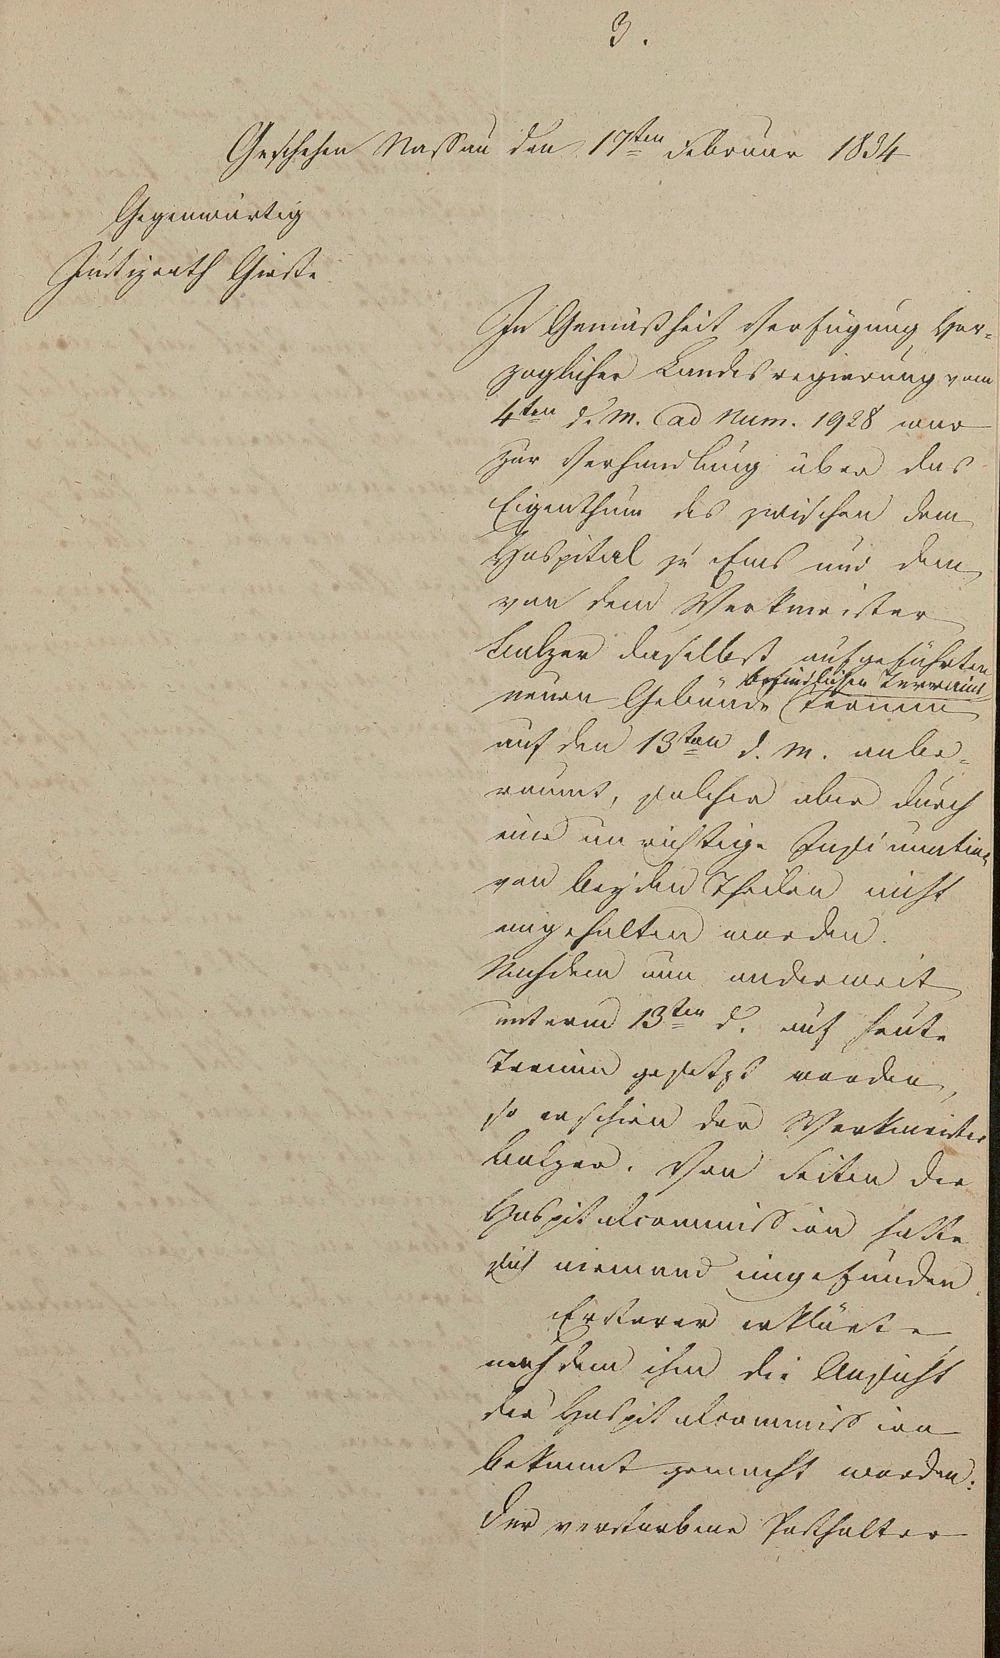 3.
Geschehen Nassau den 17ten Februar 1834
Gegenwärtig
Justizrath Gieße
In Gemäßheit Verfügung Her-
zoglicher Landesregierung vom
4ten d. M. ad Num. 1928 war
zur Verhandlung über das
Eigenthum des zwischen dem
Hospital zu Ems und dem
von dem Werkmeister
Balzer daselbst aufgeführten
befindlichen Terrains
neuen Gebäude Termin
auf den 13ten d. M. anbe-
raumt, solcher aber durch
eine unrichtige Insinuation
von beyden Theilen nicht
eingehalten worden.
Nachdem nun anderweit
unterm 13ten d. auf heute
Termin gesetzt worden,
so erschien der Werkmeister
Balzer. Von Seiten der
Hospitalcommission hatte
sich niemand eingefunden.
Ersterer erklärte,
nachdem ihm die Ansicht
der Hospitalcommission
bekannt gemacht worden:
Der verstorbene Posthalter